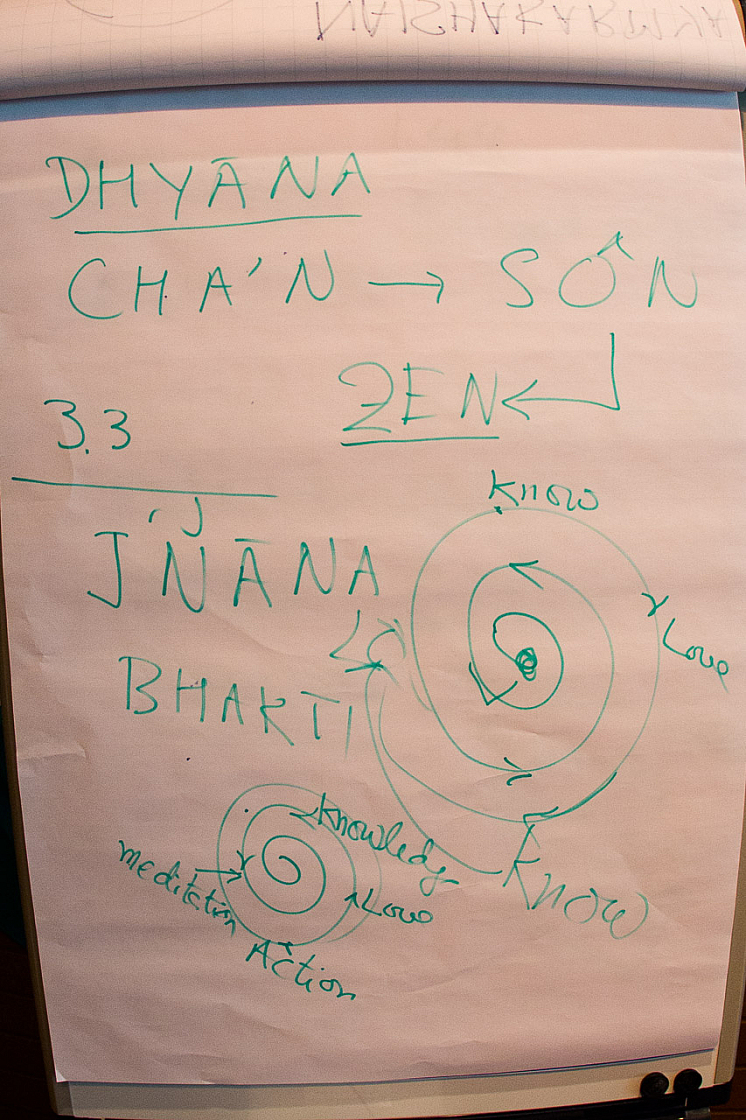 NAISHAKARMYA
DHYĀNA
CHA'N → SÔN
ZEN
3.3
JÑĀNA
BHAKTI
Know
Love
Know
Knowledge
Meditation
Love
Action